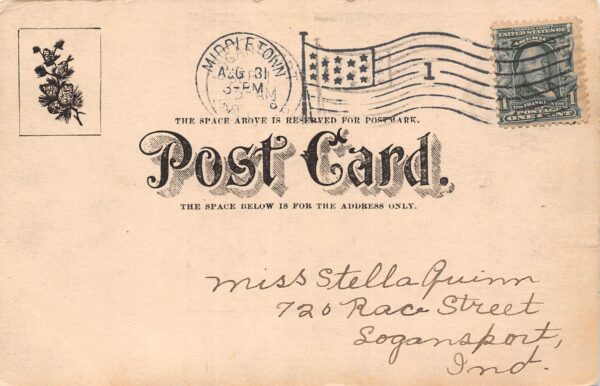 MIDDLETOWN
AUG 31
3-PM
1
SERIES 1902
UNITED STATES OF AMERICA
1 FRANKLIN 1
POSTAGE
ONE CENT
THE SPACE ABOVE IS RESERVED FOR POSTMARK.
Post Card.
THE SPACE BELOW IS FOR THE ADDRESS ONLY.
Miss Stella Quinn
720 Race Street
Logansport,
Ind.